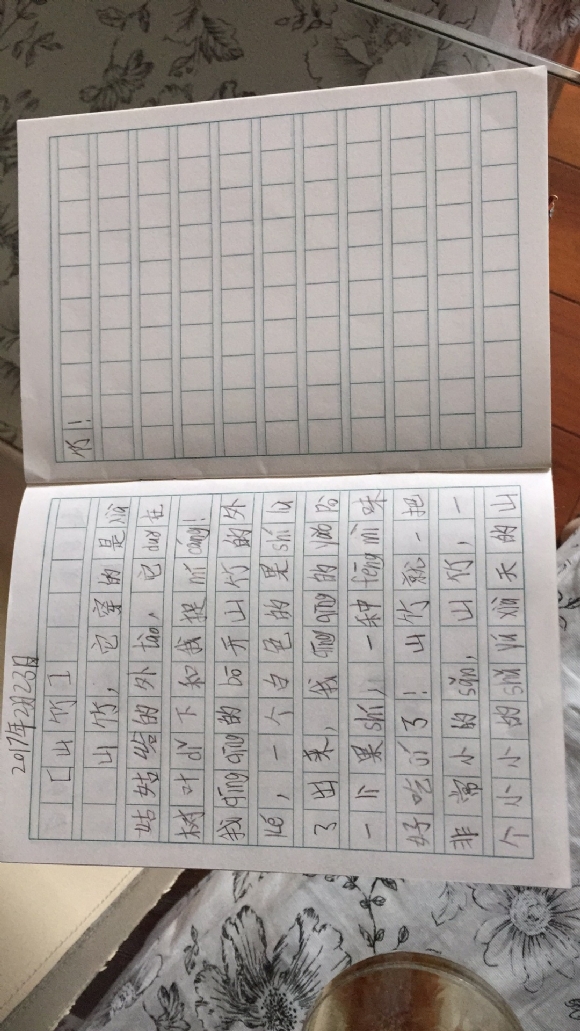 2017年2月22日
[山竹]
山竹,它穿的是xiù
咕咕哈的外tào,它duǒ在
树叶dǐ下和我捉mí cáng!
我qīng qīng的bō开山竹的外
ké,一个白色的果shí lù
了出来,我qīng qīng的yǎo
一个果shí,一种fēng mì味
好吃jí了!山竹就一把
非常小的sǎn,山竹,一
个小小的shǔ yú xià天的山
竹!